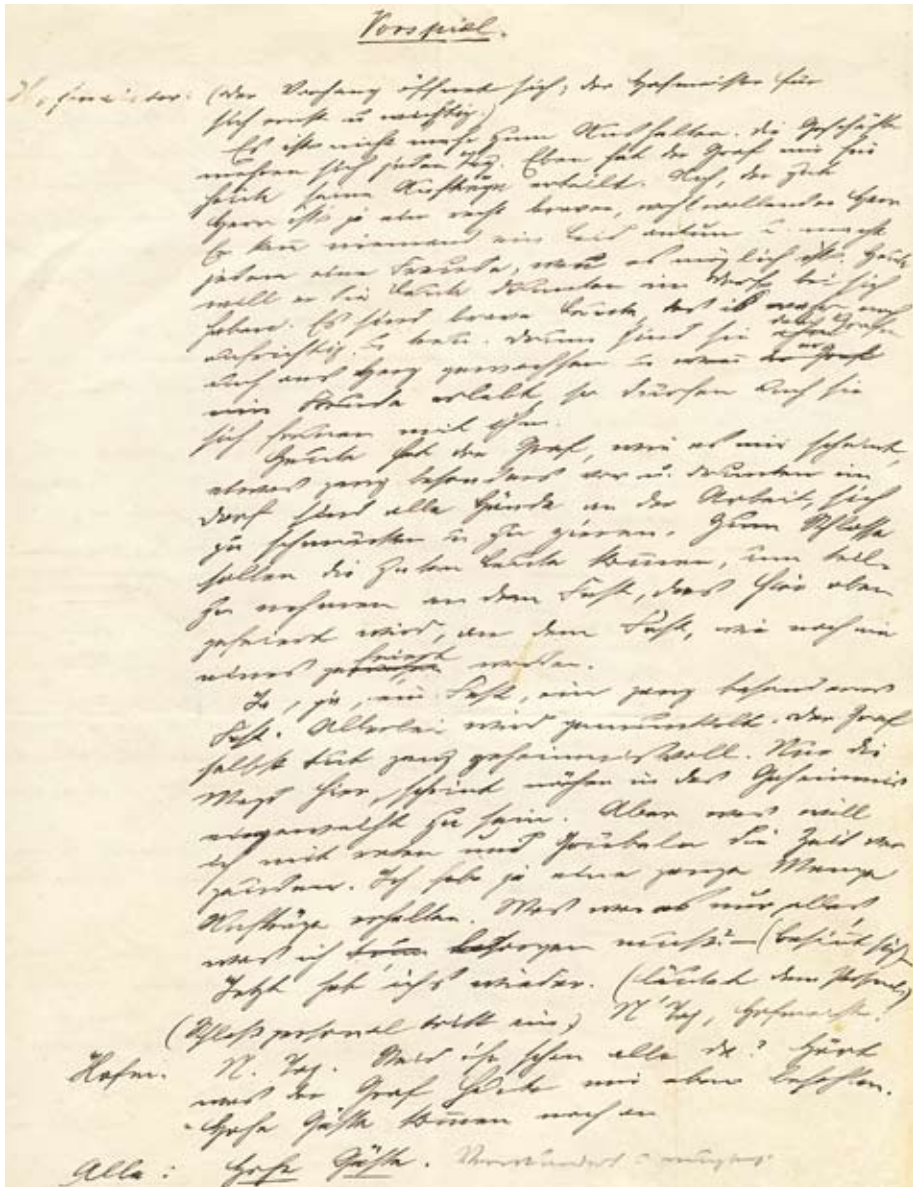 Vorspiel.
Hofmeister: (Der Vorhang öffnet sich, der Hofmeister für
sich ernst u wichtig.)
Es ist nicht mehr zum Aushalten. die Geschäfte
mehren sich jeden Tag. Eben hat der Graf mir für
heute seine Aufträge erteilt. Ach, der gute
Herr ist ja ein recht braver, wohlwollender Herr
Er kann niemand ein Leid antun u. macht
jedem eine Freude, wenn es möglich ist. Heute
will er die Leute drunten im Dorf bei sich
haben. Es sind brave Leute, das ist wahr,
aufrichtig u treu. Drum sind sie dem Grafen
auch ans Herz gewachsen u wenn der Graf er
eine Freude erlebt, so dürfen auch sie
sich freuen mit ihm.
Heute hat der Graf, wie es mir scheint,
etwas ganz besonders vor u. drunten im
Dorf sind alle Hände an der Arbeit, sich
zu schmücken u zu zieren. Zum Schlosse
sollen die guten Leute kommen, um teil-
zu nehmen an dem Fest, das hier oben
gefeiert wird, an dem Fest, wie noch nie
eines gefeiert worden.
Ja, ja, ein Fest, ein ganz besonderes
Fest. Allerlei wird gemunkelt. Der Graf
selbst tut ganz geheimnisvoll. Nur die
hier, scheint näher in das Geheimnis
eingeweiht zu sein. Aber was will
ich mit raten und Grübeln die Zeit ver
geuden. Ich habe ja eine ganze Menge
Aufträge erhalten. Was war es nur alles,
was ich besorgen muß? – (besinnt sich)
Jetzt hab ich's wieder. (läutet dem Personal)
(Schloßpersonal tritt ein) N' Tag, Hofmeister!
Hofm. N. Tag. Seid ihr schon alle da? Hört
was der Graf heute mir eben befohlen.
Hohe Gäste kommen noch an
Alle: Hohe Gäste. Verwundert u neugierig.